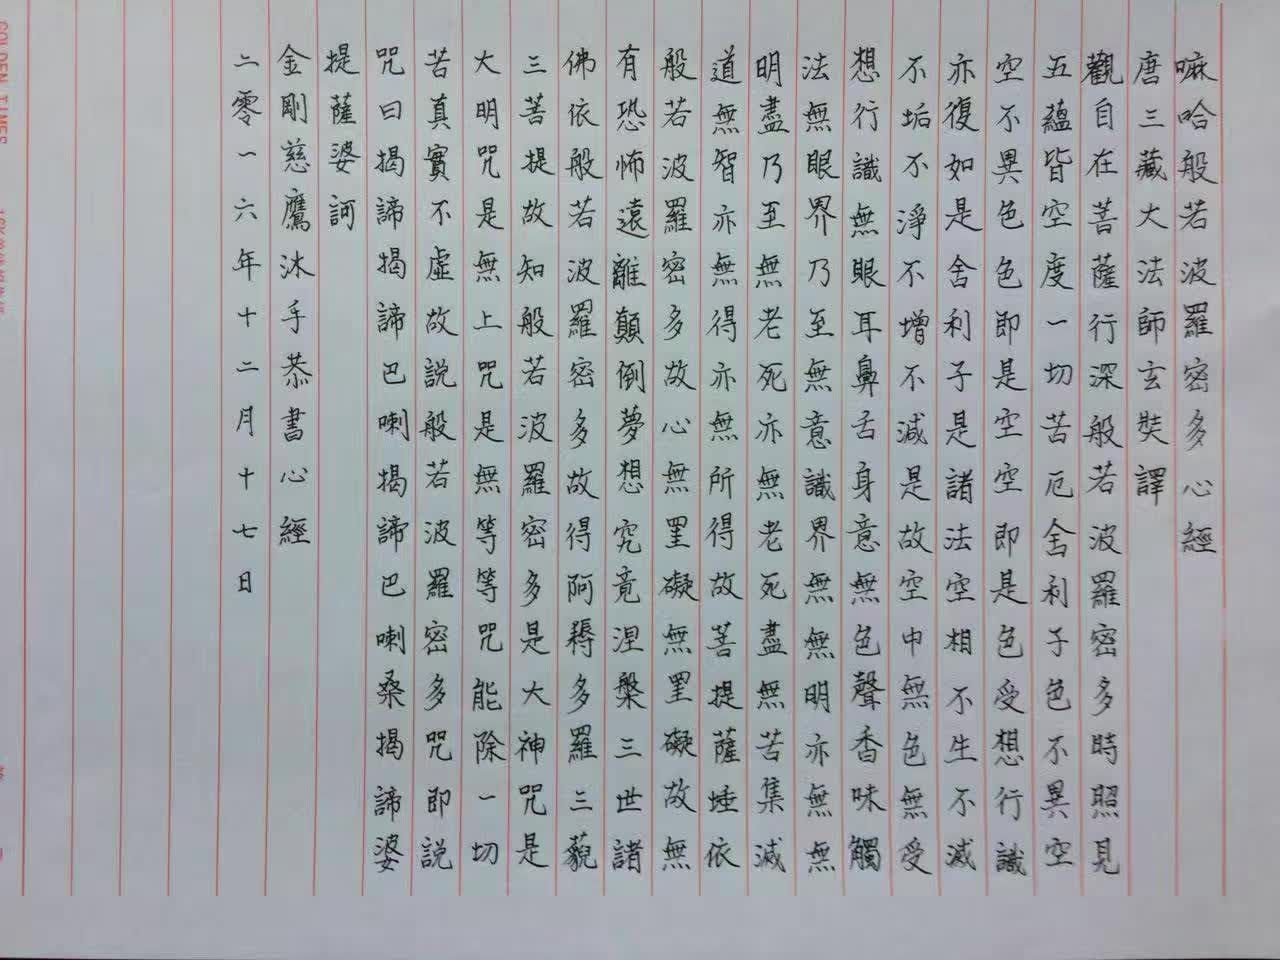 嘛哈般若波羅密多心經
唐三藏大法師玄奘譯
觀自在菩薩行深般若波羅密多時照見
五蘊皆空度一切苦厄舍利子色不異空
空不異色色即是空空即是色受想行識
亦復如是舍利子是諸法空相不生不滅
不垢不淨不增不減是故空中無色無受
想行識無眼耳鼻舌身意無色聲香味觸
法無眼界乃至無意識界無無明亦無無
明盡乃至無老死亦無老死盡無苦集滅
道無智亦無得亦無所得故菩提薩埵依
般若波羅密多故心無罣礙無罣礙故無
有恐怖遠離顛倒夢想究竟涅槃三世諸
佛依般若波羅密多故得阿耨多羅三藐
三菩提故知般若波羅密多是大神咒是
大明咒是無上咒是無等等咒能除一切
苦真實不虛故說般若波羅密多咒即說
咒曰揭諦揭諦巴喇揭諦巴喇桑揭諦婆
提薩婆訶
金剛慈鷹沐手恭書心經
二零一六年十二月十七日
GOLDEN TIMES